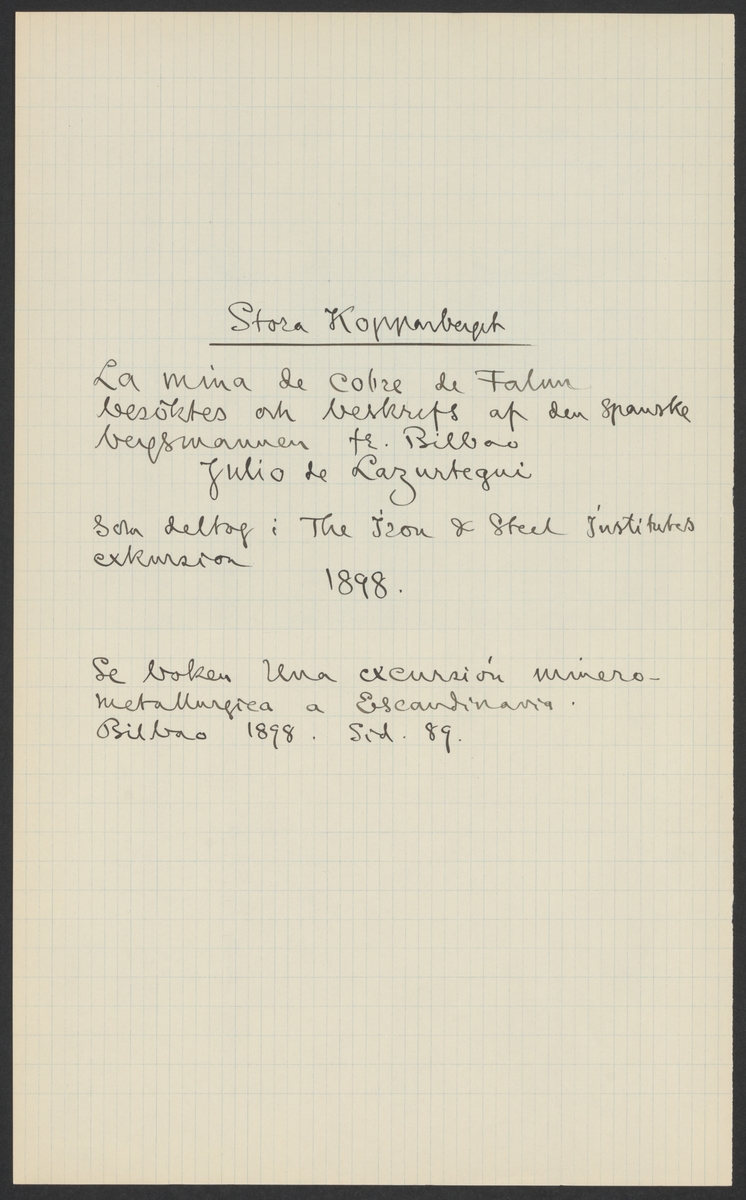 Stora Kopparberget
La mina de cobre de Falun
besöktes och beskrefs af den spanske
bergsmannen fr. Bilbao
Julio de Lazurtegui
som deltog i The Iron & Steel Institutes
exkursion
1898.
Se boken Una excursión minero-
metallurgica a Escandinavia.
Bilbao 1898. Sid. 89.